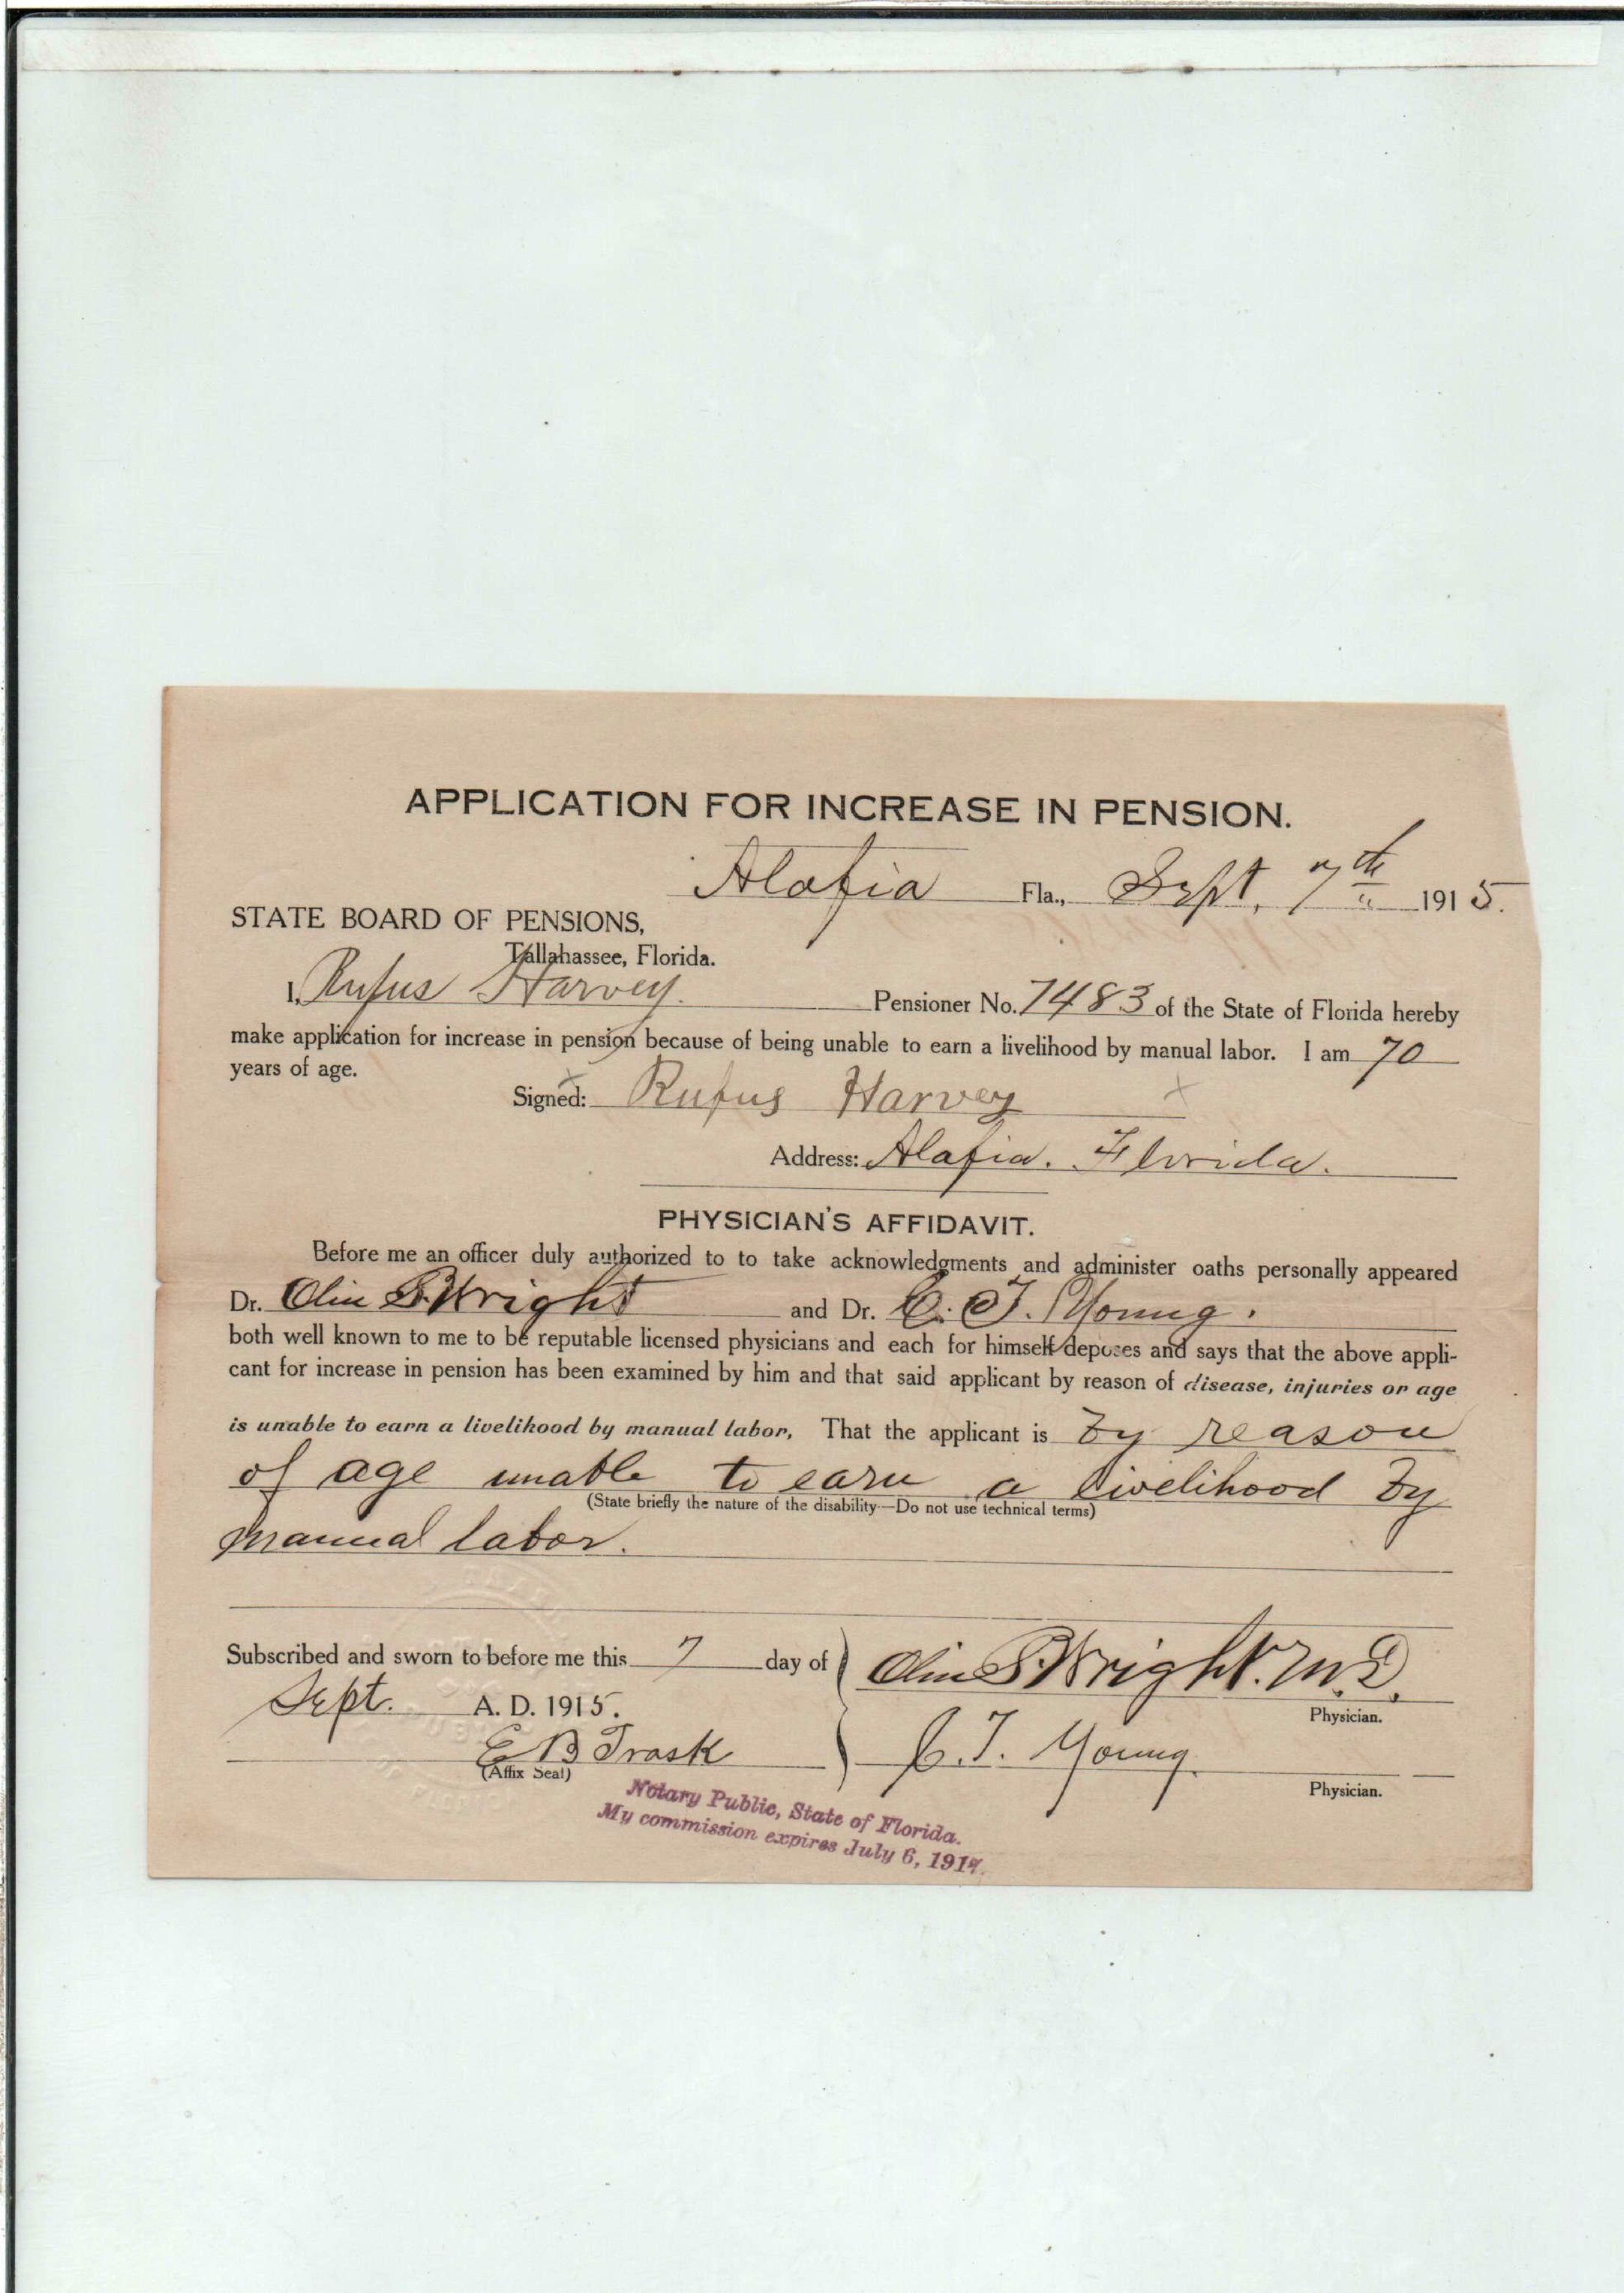 APPLICATION FOR INCREASE IN PENSION.
Alafia Fla., Sept, 7th 1915.
STATE BOARD OF PENSIONS,
Tallahassee, Florida.
I, Rufus Harvey. Pensioner No. 7483 of the State of Florida hereby
make application for increase in pension because of being unable to earn a livelihood by manual labor. I am 70
years of age.
Signed: x Rufus Harvey x
Address: Alafia. Florida.
PHYSICIAN'S AFFIDAVIT.
Before me an officer duly authorized to to take acknowledgments and administer oaths personally appeared
Dr. Olin S. Wright and Dr. C. T. Young.
both well known to me to be reputable licensed physicians and each for himself deposes and says that the above appli-
cant for increase in pension has been examined by him and that said applicant by reason of disease, injuries or age
is unable to earn a livelihood by manual labor, That the applicant is by reason
of age unable to earn a livelihood by
(State briefly the nature of the disability—Do not use technical terms)
manual labor.
Subscribed and sworn to before me this 7 day of
Olin S. Wright. M.D.
Sept. A. D. 1915.
Physician.
E B Trask
C. T. Young.
(Affix Seal)
Physician.
Notary Public, State of Florida.
My commission expires July 6, 1917.